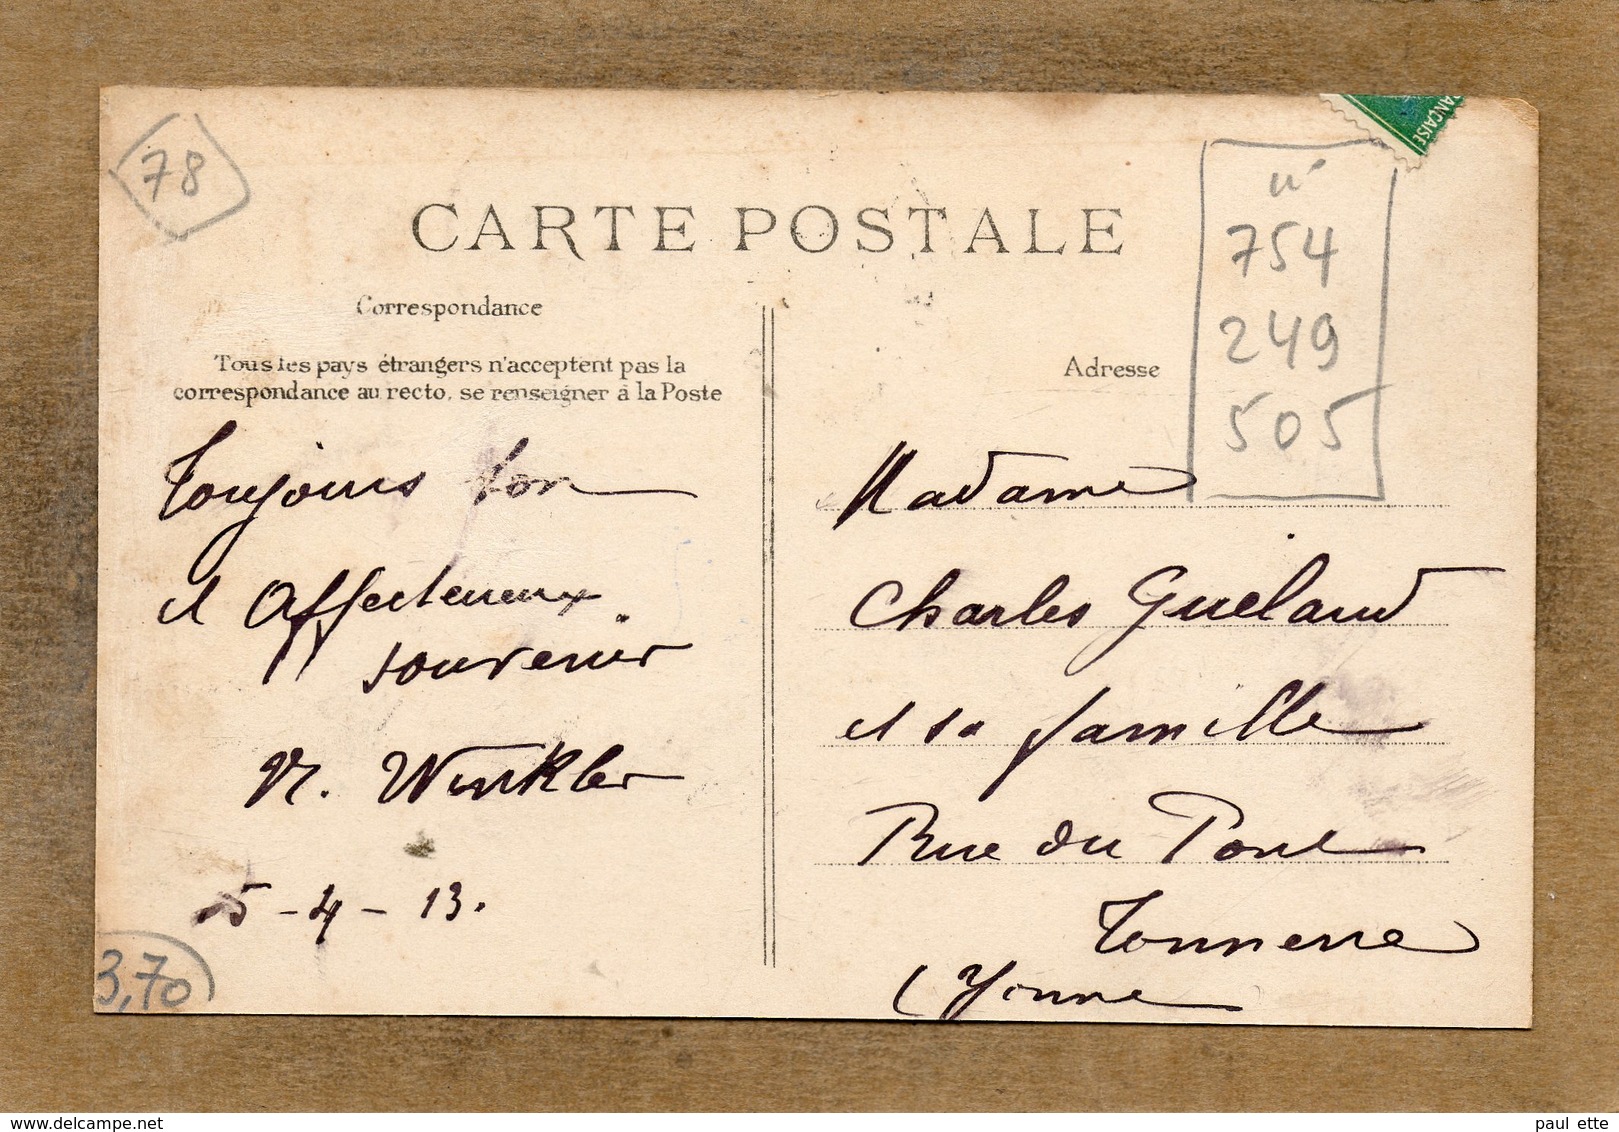 78
CARTE POSTALE
n°
754
249
505
Correspondance
Tous les pays étrangers n'acceptent pas la
correspondance au recto, se renseigner à la Poste
Toujours bon
et Affectueux
souvenir
M. Winkler
5-4-13.
3,70
Adresse
Madame
Charles Gueland
et sa famille
Rue du Pont
Tonnerre
(Yonne
ANÇAISE
paul ette